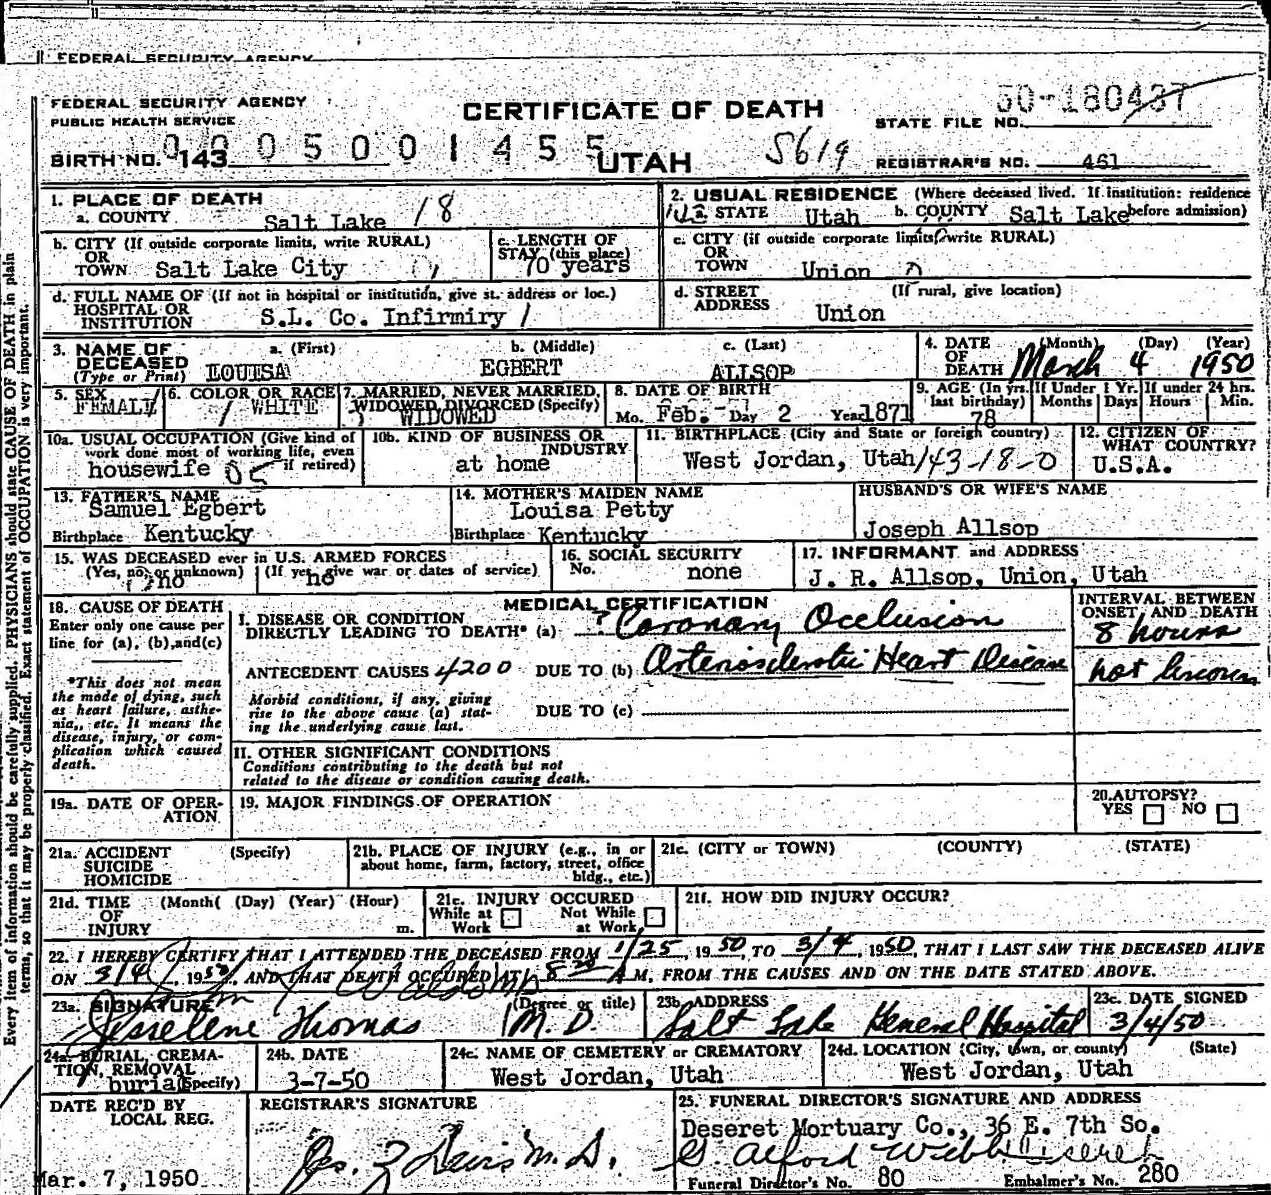 FEDERAL SECURITY AGENCY
FEDERAL SECURITY AGENCY
PUBLIC HEALTH SERVICE
CERTIFICATE OF DEATH
50-180437
STATE FILE NO.
BIRTH NO. 143
0005001455
UTAH
5619
REGISTRAR'S NO. 461
1. PLACE OF DEATH
a. COUNTY Salt Lake 18
2. USUAL RESIDENCE (Where deceased lived. If institution: residence before admission)
a. STATE Utah b. COUNTY Salt Lake
b. CITY (If outside corporate limits, write RURAL)
OR
TOWN Salt Lake City
c. LENGTH OF
STAY (this place)
70 years
c. CITY (if outside corporate limits, write RURAL)
OR
TOWN Union
d. FULL NAME OF (If not in hospital or institution, give st. address or loc.)
HOSPITAL OR
INSTITUTION S.L. Co. Infirmiry
d. STREET (If rural, give location)
ADDRESS Union
3. NAME OF DECEASED (Type or Print)
a. (First) b. (Middle) c. (Last)
LOUISA EGBERT ALLSOP
4. DATE OF DEATH (Month) (Day) (Year)
March 4 1950
5. SEX
FEMALE
6. COLOR OR RACE
WHITE
7. MARRIED, NEVER MARRIED,
WIDOWED DIVORCED (Specify)
WIDOWED
8. DATE OF BIRTH
Mo. Feb. Day 2 Year 1871
9. AGE (In yrs. last birthday)
78
If Under 1 Yr. Months Days
If under 24 hrs. Hours Min.
10a. USUAL OCCUPATION (Give kind of work done most of working life, even if retired)
housewife
10b. KIND OF BUSINESS OR INDUSTRY
at home
11. BIRTHPLACE (City and State or foreign country)
West Jordan, Utah 143-18-0
12. CITIZEN OF WHAT COUNTRY?
U.S.A.
13. FATHER'S NAME
Samuel Egbert
Birthplace Kentucky
14. MOTHER'S MAIDEN NAME
Louisa Petty
Birthplace Kentucky
HUSBAND'S OR WIFE'S NAME
Joseph Allsop
15. WAS DECEASED ever in U.S. ARMED FORCES
(Yes, no, or unknown) (If yes, give war or dates of service)
no no
16. SOCIAL SECURITY
No. none
17. INFORMANT and ADDRESS
J. R. Allsop, Union, Utah
18. CAUSE OF DEATH
Enter only one cause per
line for (a), (b), and (c)
*This does not mean
the mode of dying, such
as heart failure, asthe-
nia, etc. It means the
disease, injury, or com-
plication which caused
death.
MEDICAL CERTIFICATION
I. DISEASE OR CONDITION
DIRECTLY LEADING TO DEATH* (a) ? Coronary Occlusion
ANTECEDENT CAUSES 4200 DUE TO (b) Arteriosclerotic Heart Disease
Morbid conditions, if any, giving
rise to the above cause (a) stat-
ing the underlying cause last.
DUE TO (c)
INTERVAL BETWEEN
ONSET AND DEATH
8 hours
not known
II. OTHER SIGNIFICANT CONDITIONS
Conditions contributing to the death but not
related to the disease or condition causing death.
19a. DATE OF OPER-
ATION
19. MAJOR FINDINGS OF OPERATION
20. AUTOPSY?
YES NO
21a. ACCIDENT (Specify)
SUICIDE
HOMICIDE
21b. PLACE OF INJURY (e.g., in or
about home, farm, factory, street, office
bldg., etc.)
21c. (CITY or TOWN) (COUNTY) (STATE)
21d. TIME (Month( (Day) (Year) (Hour)
OF
INJURY m.
21e. INJURY OCCURED
While at Work Not While at Work
21f. HOW DID INJURY OCCUR?
22. I HEREBY CERTIFY THAT I ATTENDED THE DECEASED FROM 1/25, 1950, TO 3/4, 1950, THAT I LAST SAW THE DECEASED ALIVE
ON 3/4, 1950, AND THAT DEATH OCCURED AT 8 A M, FROM THE CAUSES AND ON THE DATE STATED ABOVE.
23a. SIGNATURE (Degree or title)
Jesselene Thomas M.D.
23b. ADDRESS
Salt Lake General Hospital
23c. DATE SIGNED
3/4/50
24a. BURIAL, CREMA-
TION, REMOVAL
burial (Specify)
24b. DATE
3-7-50
24c. NAME OF CEMETERY or CREMATORY
West Jordan, Utah
24d. LOCATION (City, town, or county) (State)
West Jordan, Utah
DATE REC'D BY
LOCAL REG.
Mar. 7, 1950
REGISTRAR'S SIGNATURE
25. FUNERAL DIRECTOR'S SIGNATURE AND ADDRESS
Deseret Mortuary Co., 36 E. 7th So.
Funeral Director's No. 80 Embalmer's No. 280
Every item of information should be carefully supplied. PHYSICIANS should state CAUSE OF DEATH in plain
terms, so that it may be properly classified. Exact statement of OCCUPATION is very important.